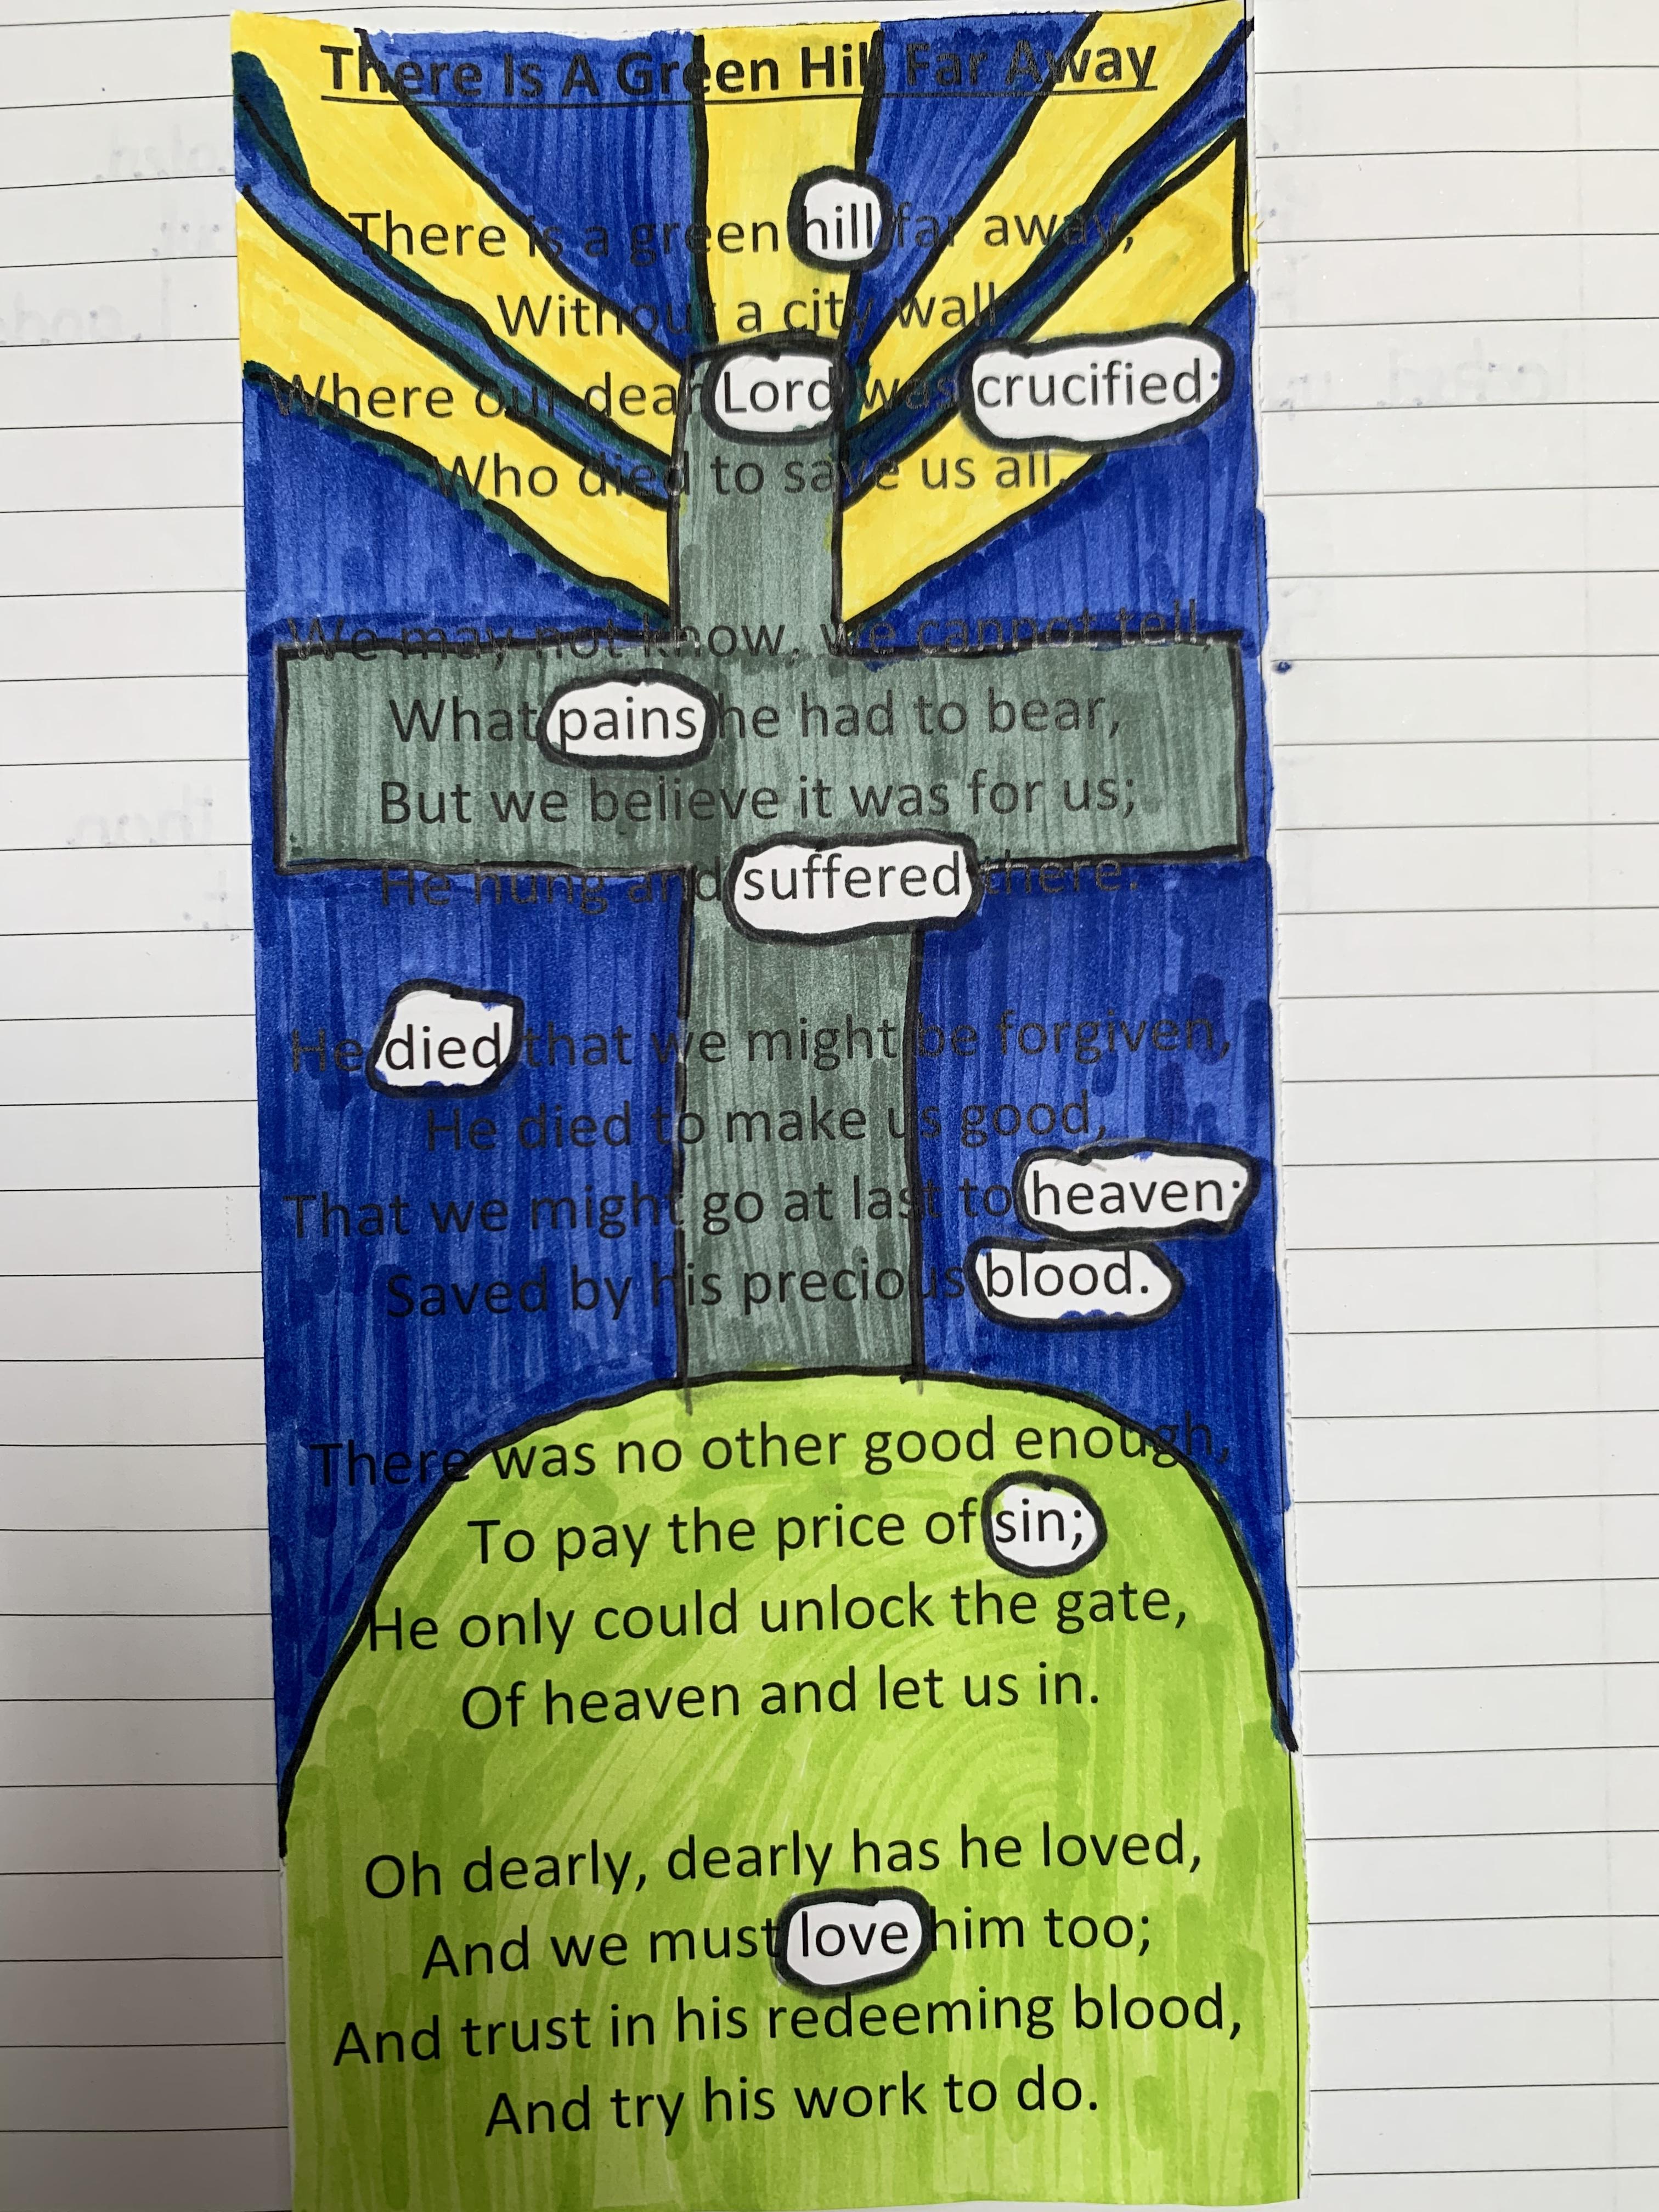 There Is A Green Hill Far Away
There is a green hill far away,
Without a city wall
Where our dear Lord was crucified;
Who died to save us all.
We may not know, we cannot tell,
What pains he had to bear,
But we believe it was for us;
He hung and suffered there.
He died that we might be forgiven,
He died to make us good,
That we might go at last to heaven;
Saved by his precious blood.
There was no other good enough,
To pay the price of sin;
He only could unlock the gate,
Of heaven and let us in.
Oh dearly, dearly has he loved,
And we must love him too;
And trust in his redeeming blood,
And try his work to do.